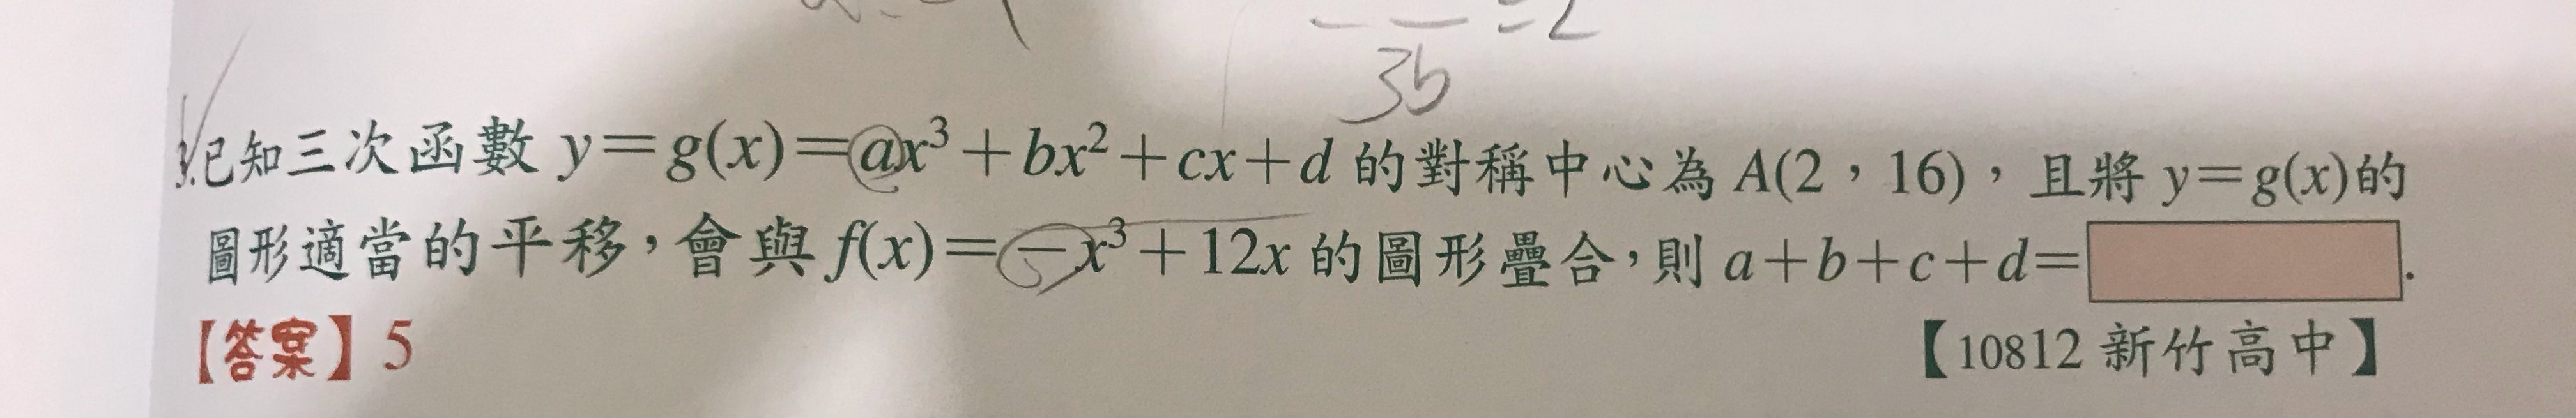 =2
35
已知三次函數 y=g(x)=ax³+bx²+cx+d 的對稱中心為 A(2,16),且將 y=g(x)的
圖形適當的平移,會與 f(x)=-x³+12x 的圖形疊合,則 a+b+c+d= .
【答案】5 【10812 新竹高中】